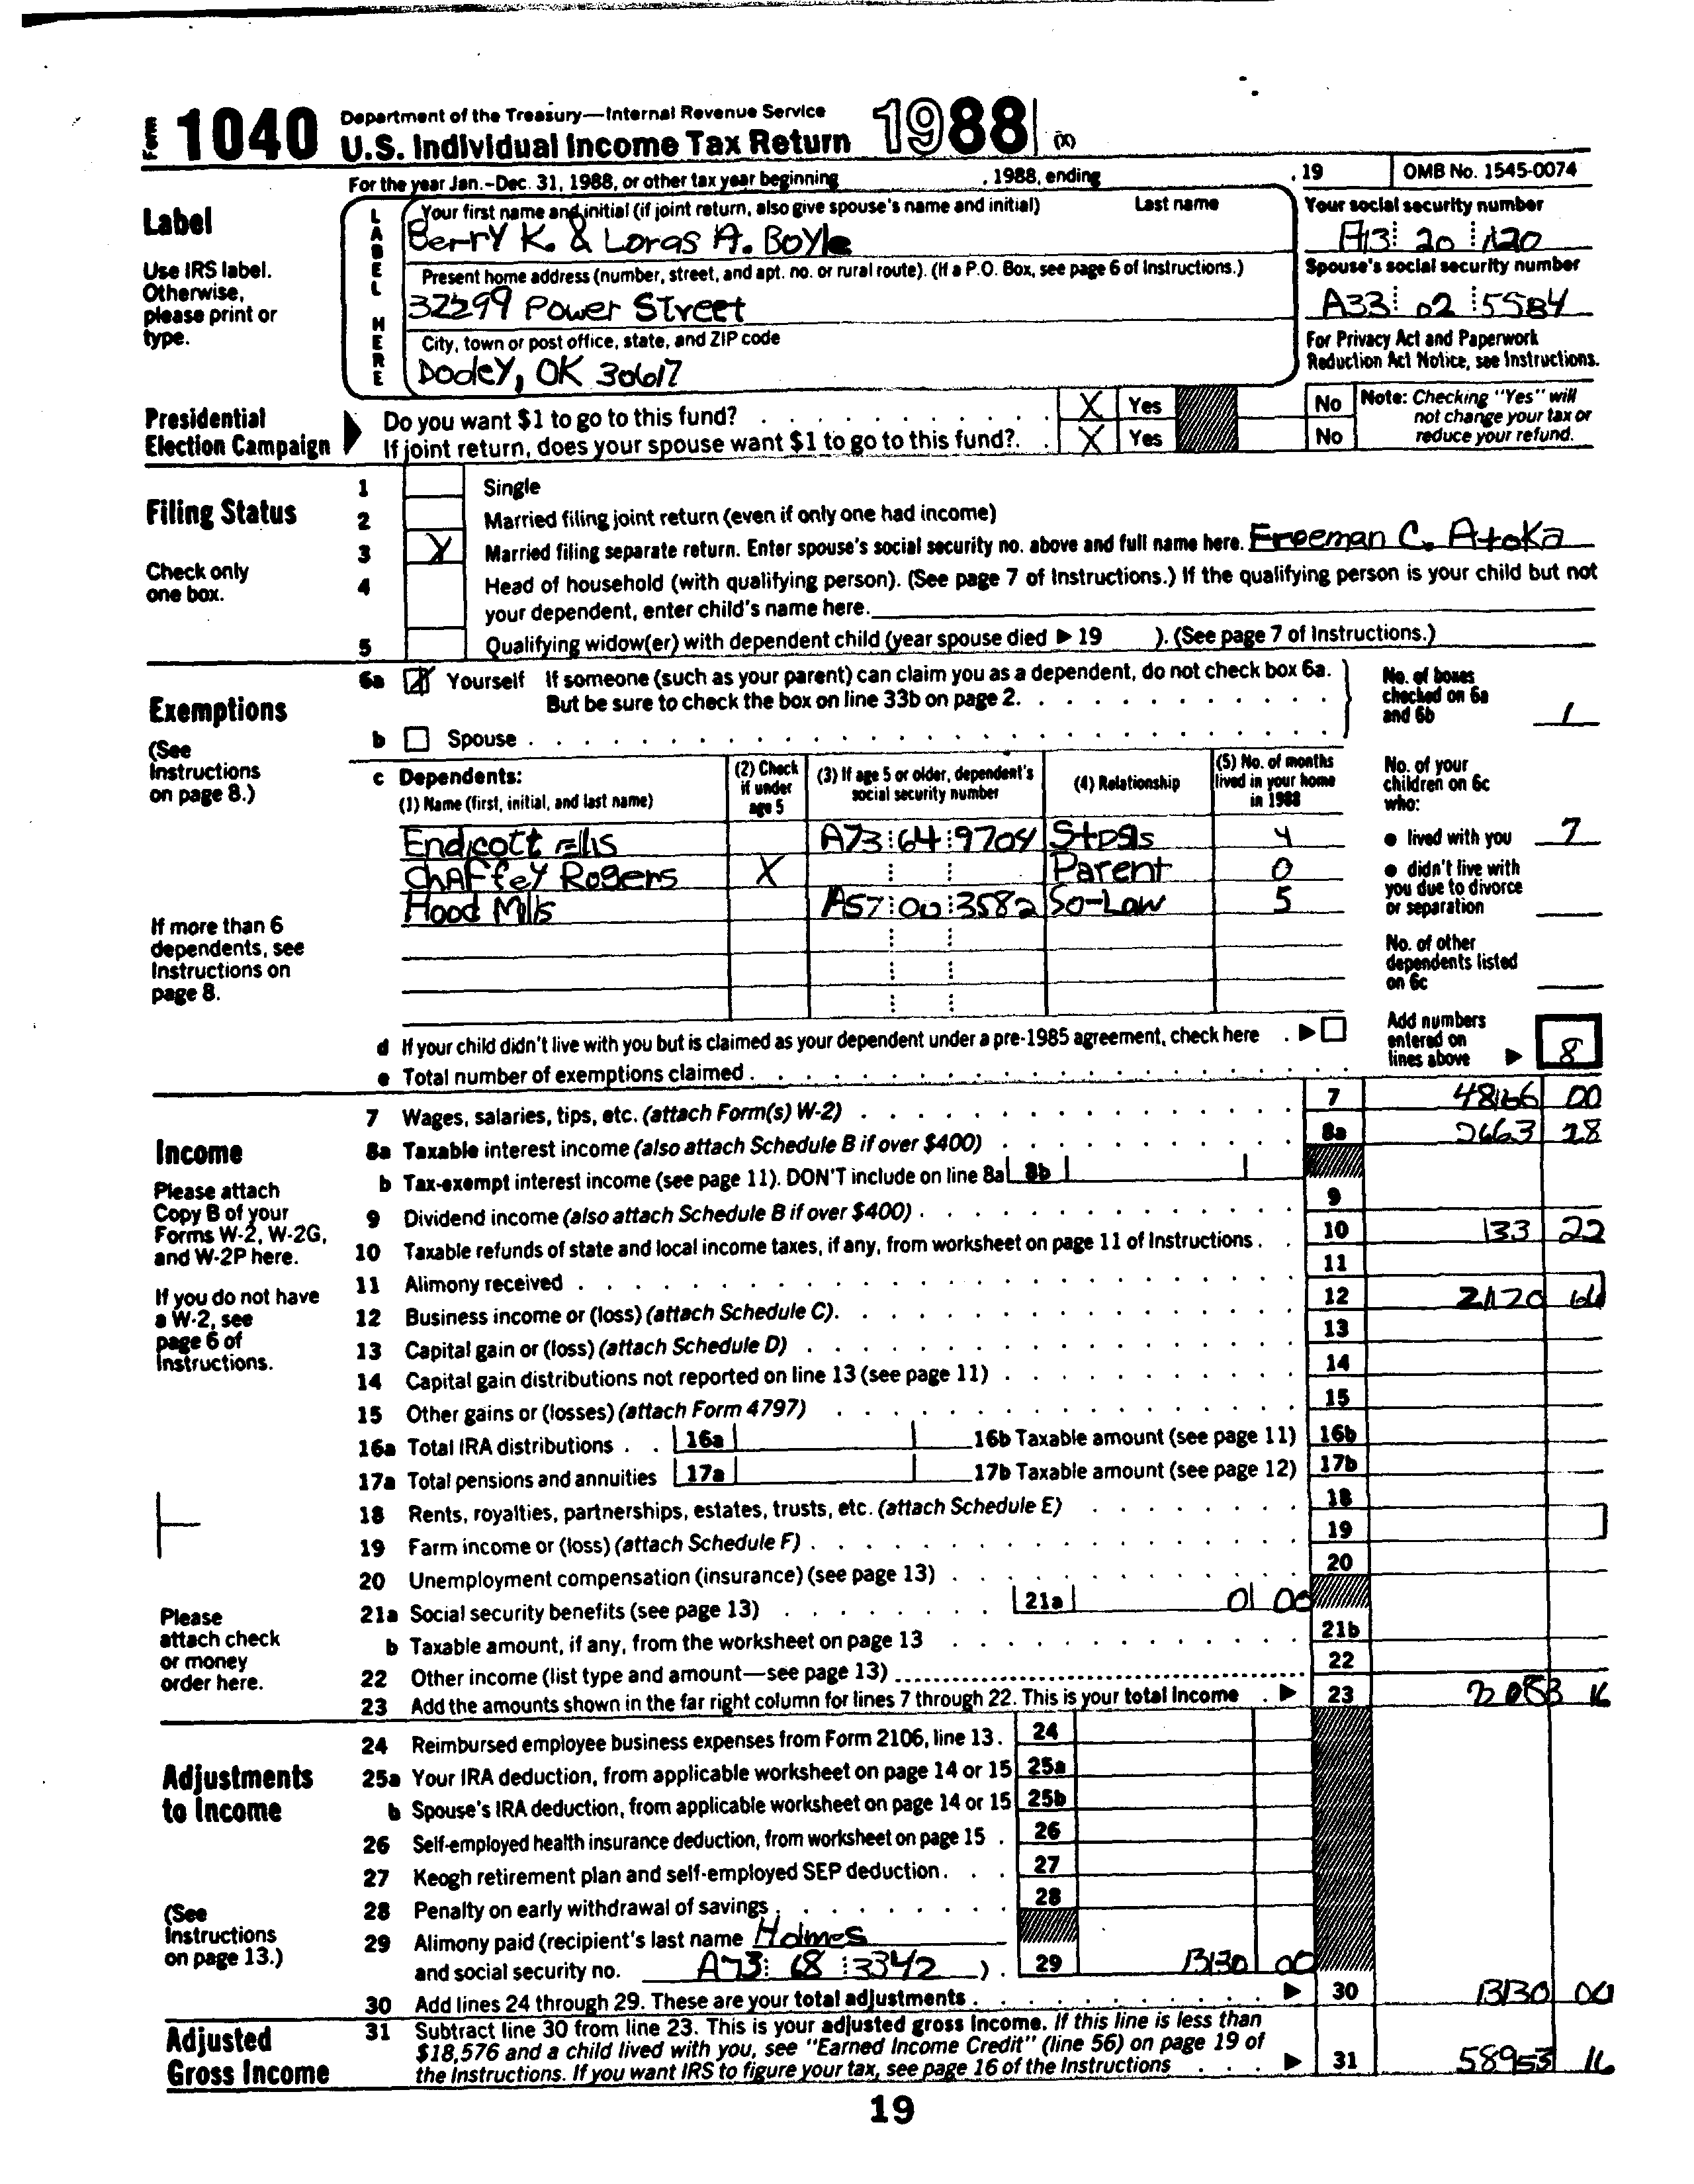 Form 1040 Department of the Treasury—Internal Revenue Service
U.S. Individual Income Tax Return 1988 (X)
For the year Jan.-Dec. 31, 1988, or other tax year beginning , 1988, ending , 19 OMB No. 1545-0074
Label
Use IRS label. Otherwise, please print or type.
LABEL HERE
Your first name and initial (if joint return, also give spouse's name and initial) Last name
Berry K. & Loras A. Boyle
Your social security number
A13 20 1120
Present home address (number, street, and apt. no. or rural route). (If a P.O. Box, see page 6 of Instructions.)
32299 Power Street
Spouse's social security number
A33 02 5584
City, town or post office, state, and ZIP code
Dooley, OK 30617
For Privacy Act and Paperwork Reduction Act Notice, see Instructions.
Presidential Election Campaign
Do you want $1 to go to this fund? X Yes No
If joint return, does your spouse want $1 to go to this fund? X Yes No
Note: Checking "Yes" will not change your tax or reduce your refund.
Filing Status
Check only one box.
1 Single
2 Married filing joint return (even if only one had income)
3 X Married filing separate return. Enter spouse's social security no. above and full name here. Freeman C. Atoka
4 Head of household (with qualifying person). (See page 7 of Instructions.) If the qualifying person is your child but not
your dependent, enter child's name here.
5 Qualifying widow(er) with dependent child (year spouse died ▶ 19 ). (See page 7 of Instructions.)
Exemptions
(See Instructions on page 8.)
6a X Yourself If someone (such as your parent) can claim you as a dependent, do not check box 6a.
But be sure to check the box on line 33b on page 2.
b Spouse
No. of boxes checked on 6a and 6b 1
c Dependents:
(1) Name (first, initial, and last name) (2) Check if under age 5 (3) If age 5 or older, dependent's social security number (4) Relationship (5) No. of months lived in your home in 1988
Endicott Ellis A73 64 9704 Stpsis 4
Chaffey Rogers X Parent 0
Hood Mills A57 00 3582 So-Law 5
No. of your children on 6c who:
● lived with you 7
● didn't live with you due to divorce or separation
No. of other dependents listed on 6c
If more than 6 dependents, see Instructions on page 8.
d If your child didn't live with you but is claimed as your dependent under a pre-1985 agreement, check here ▶
e Total number of exemptions claimed
Add numbers entered on lines above ▶ 8
Income
Please attach Copy B of your Forms W-2, W-2G, and W-2P here.
If you do not have a W-2, see page 6 of Instructions.
Please attach check or money order here.
7 Wages, salaries, tips, etc. (attach Form(s) W-2) 7 48166 00
8a Taxable interest income (also attach Schedule B if over $400) 8a 2663 28
b Tax-exempt interest income (see page 11). DON'T include on line 8a 8b
9 Dividend income (also attach Schedule B if over $400) 9
10 Taxable refunds of state and local income taxes, if any, from worksheet on page 11 of Instructions 10 133 22
11 Alimony received 11
12 Business income or (loss) (attach Schedule C) 12 21120 66
13 Capital gain or (loss) (attach Schedule D) 13
14 Capital gain distributions not reported on line 13 (see page 11) 14
15 Other gains or (losses) (attach Form 4797) 15
16a Total IRA distributions 16a 16b Taxable amount (see page 11) 16b
17a Total pensions and annuities 17a 17b Taxable amount (see page 12) 17b
18 Rents, royalties, partnerships, estates, trusts, etc. (attach Schedule E) 18
19 Farm income or (loss) (attach Schedule F) 19
20 Unemployment compensation (insurance) (see page 13) 20
21a Social security benefits (see page 13) 21a 0 00
b Taxable amount, if any, from the worksheet on page 13 21b
22 Other income (list type and amount—see page 13) 22
23 Add the amounts shown in the far right column for lines 7 through 22. This is your total income ▶ 23 72083 16
Adjustments to Income
(See Instructions on page 13.)
24 Reimbursed employee business expenses from Form 2106, line 13 24
25a Your IRA deduction, from applicable worksheet on page 14 or 15 25a
b Spouse's IRA deduction, from applicable worksheet on page 14 or 15 25b
26 Self-employed health insurance deduction, from worksheet on page 15 26
27 Keogh retirement plan and self-employed SEP deduction 27
28 Penalty on early withdrawal of savings 28
29 Alimony paid (recipient's last name Holmes
and social security no. A73 68 3342 ) 29 13130 00
30 Add lines 24 through 29. These are your total adjustments ▶ 30 13130 00
Adjusted Gross Income
31 Subtract line 30 from line 23. This is your adjusted gross income. If this line is less than
$18,576 and a child lived with you, see "Earned Income Credit" (line 56) on page 19 of
the Instructions. If you want IRS to figure your tax, see page 16 of the Instructions ▶ 31 58953 16
19